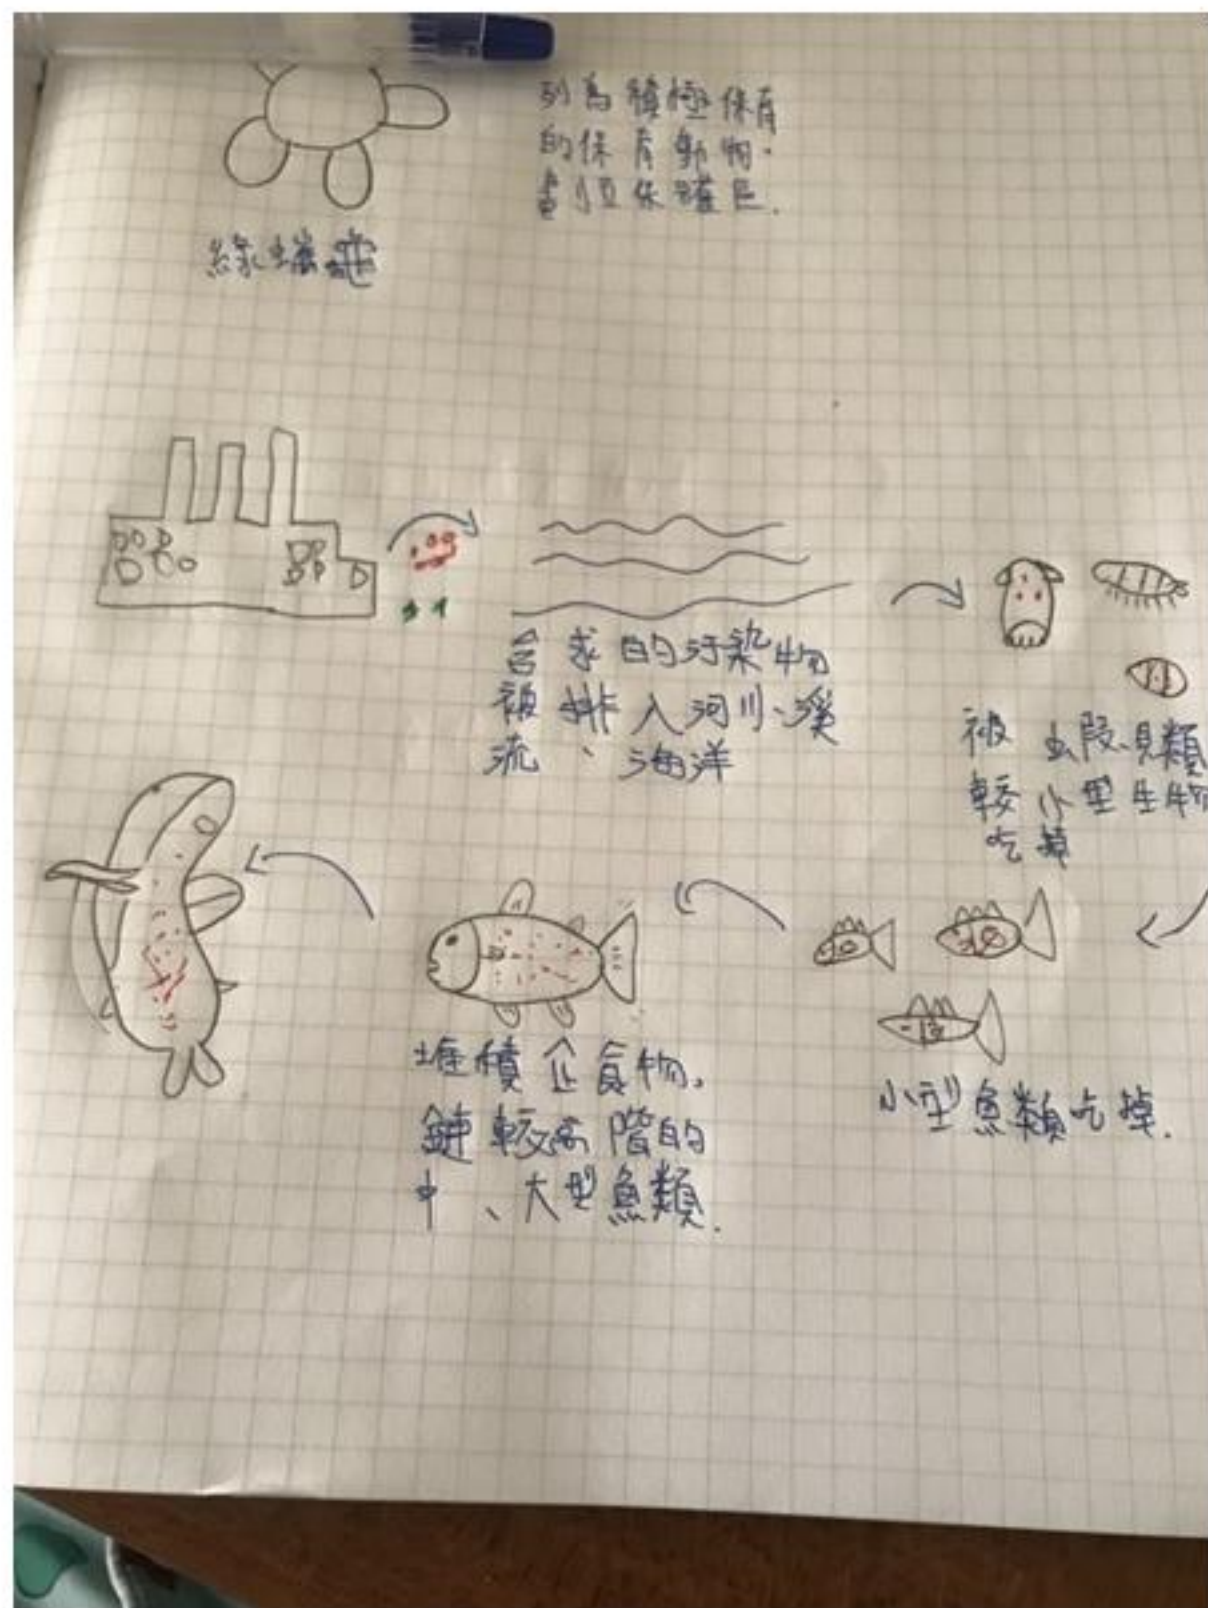 列為積極保育
的保育動物.
畫設保護區.
綠蠵龜
含汞的污染物
被排入河川、溪
流、海洋
被蝦貝類
較小型生物
吃掉
小型魚類吃掉.
堆積在食物.
鏈較高階的
中、大型魚類.